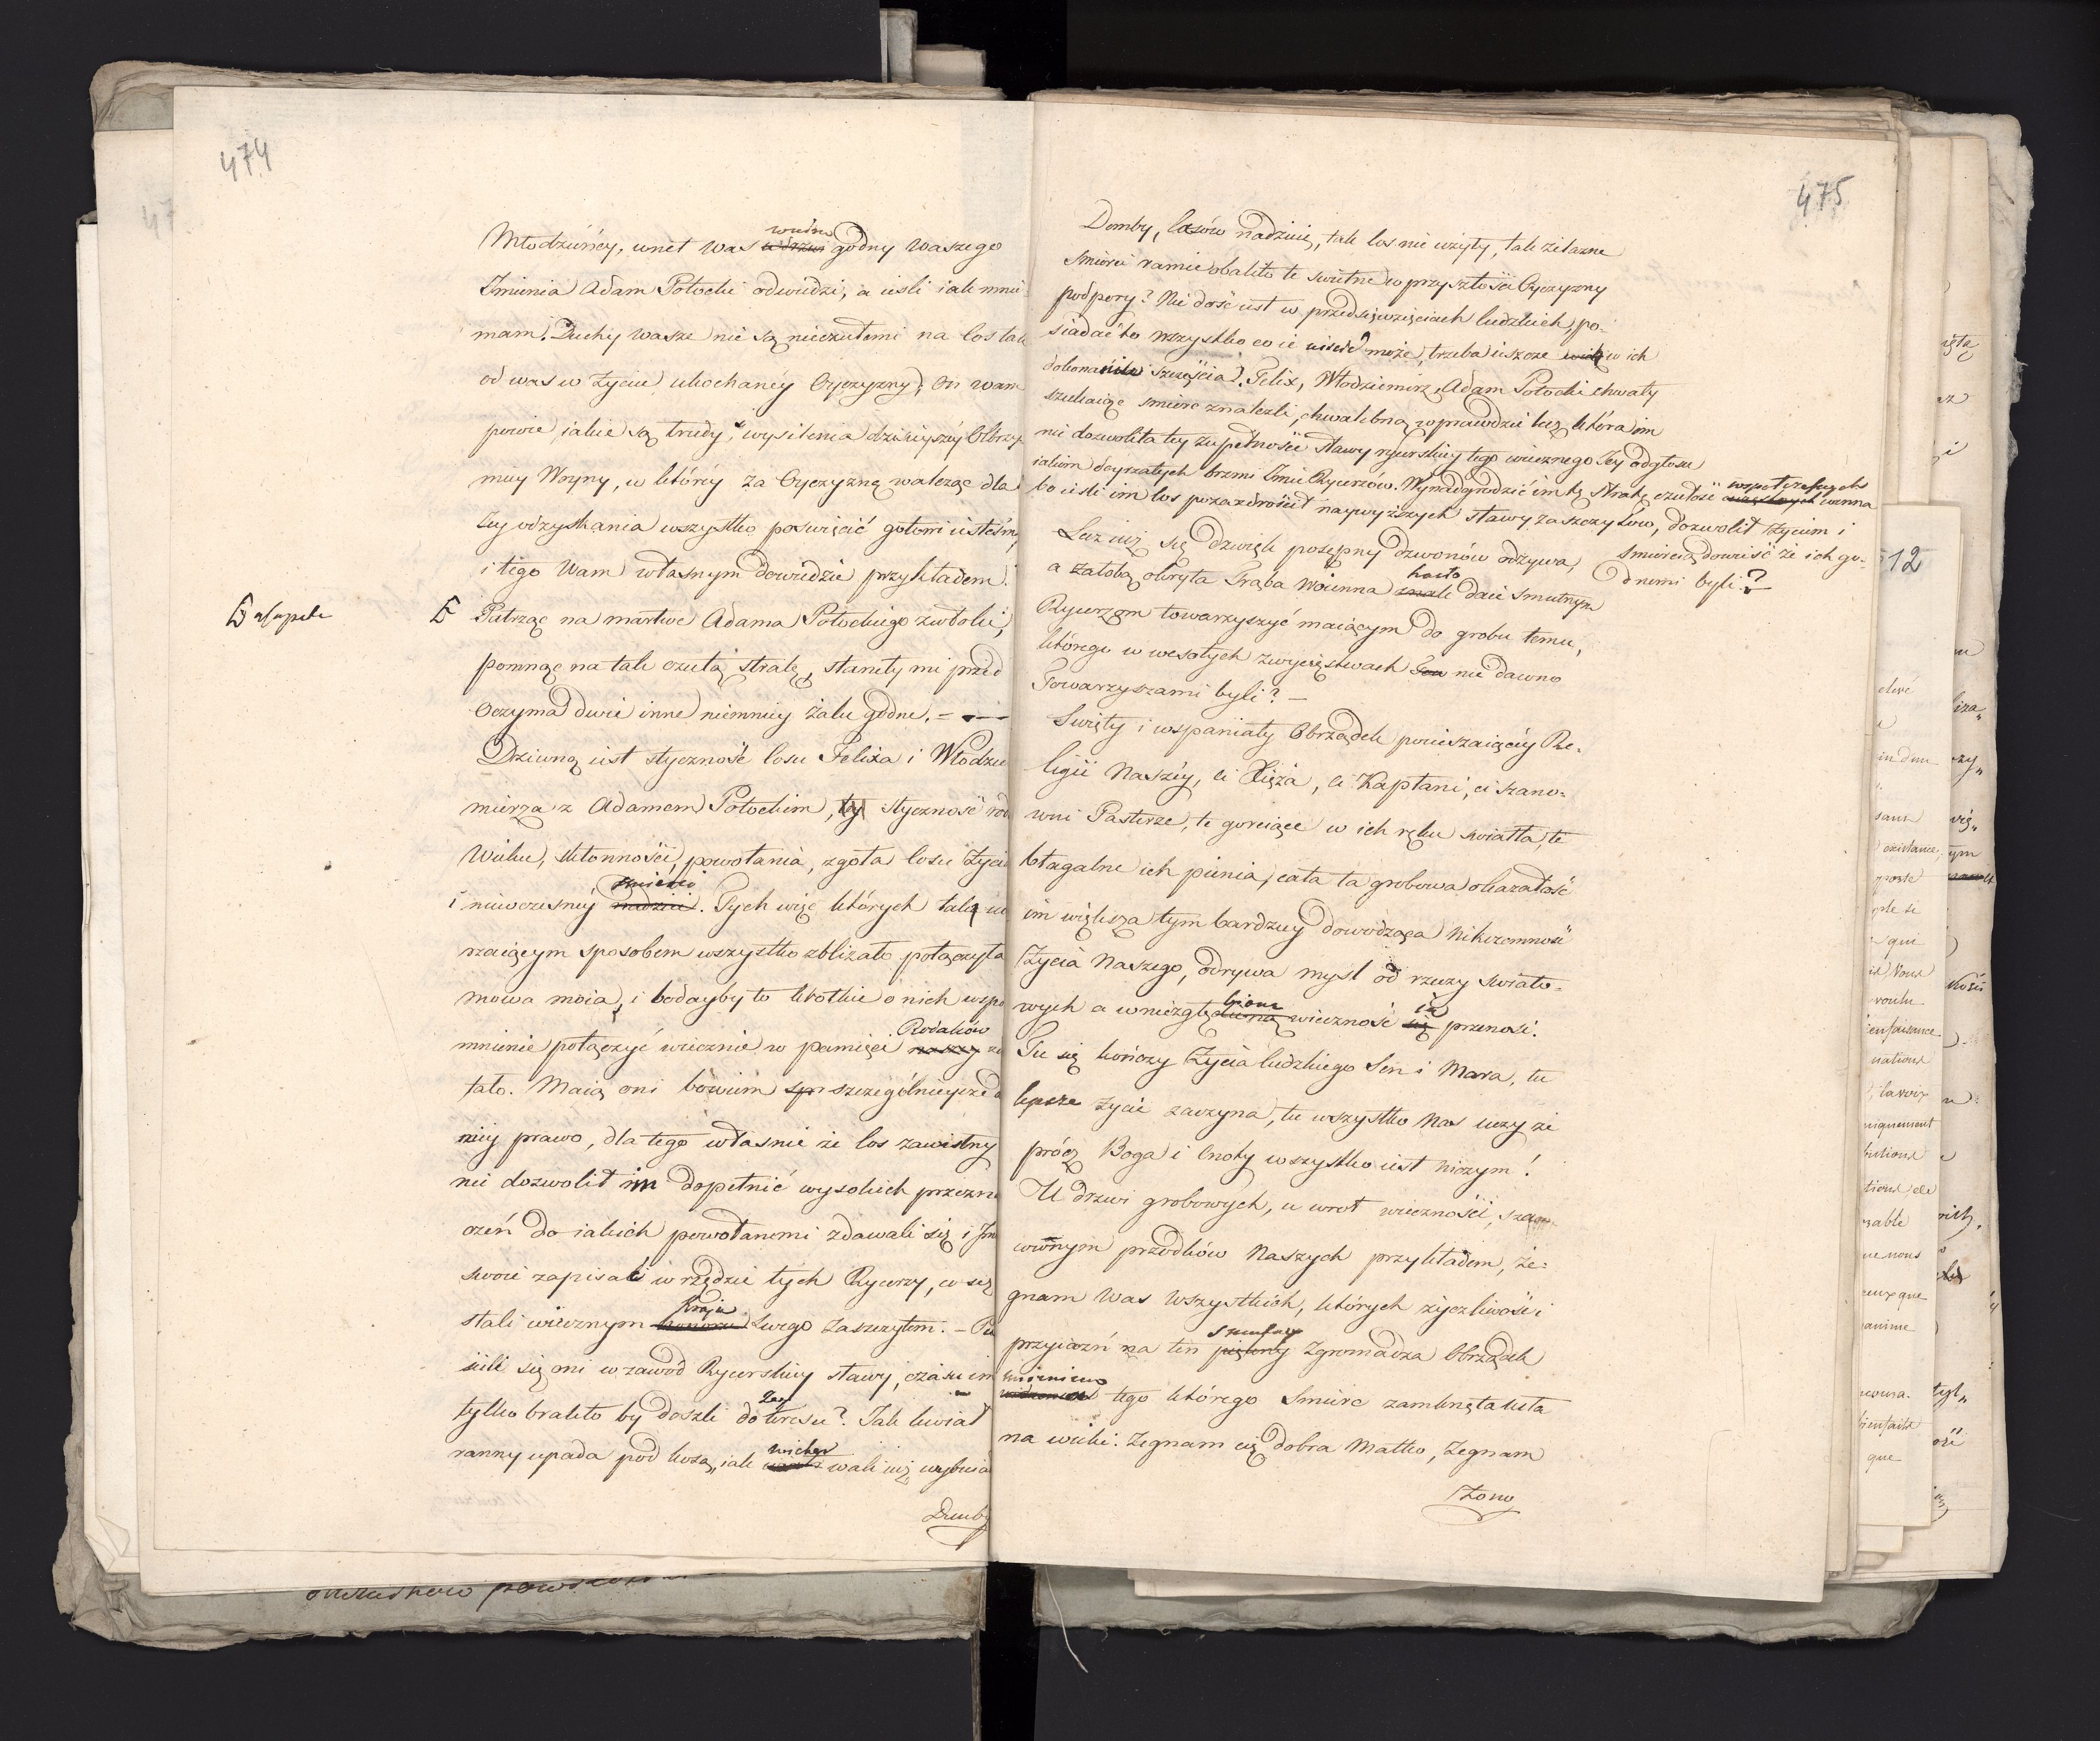 474
Młodzieńcy, wnet was wśrzod godny waszego
wiedno
Imienia Adam Potocki odwiedzi, a ieśli iak mnie=
mam, Duchy wasze nie są nieczułemi na los tak
od was w życiu ukochaney Oyczyzny, On wam
powie, iakie są trudy i wysilenia dzisieyszéy Olbrzy
miey Woyny, w któréy za Oyczyznę walcząc dla
Jey odzyskania wszystko poświęcić gotowi iesteśmy
i tego Wam własnym dowiedzie przykładem.
a capite
Patrząc na martwe Adama Potockiego zwłoki,
pomnąc na tak czułą stratę, stanęły mi przed
Oczyma dwie inne niemniey żalu godne. —
Dziwną iest styczność losu Felixa i Włodzi
mierza z Adamem Potockim, tey styczność rod
Wieku, skłonności, powołania, zgoła losu życia
i niewczesnéy nadziei. Tych więc których tak u
śmierci
rzaiącym sposobem wszystko zbliżało połączyła
mowa moia, i bodayby to krótkie o nich wspo
mnienie połączyć wiecznie w pamięci naszey zd
Rodaków
łało. Maią oni bowiem szczególnieysze d
niey prawo, dla tego właśnie że los zawistny
nie dozwolił im dopełnić wysokich przezna
czeń do iakich powołanemi zdawali się i Im
swoie zapisali w rzędzie tych Rycerzy, co się
stali wiecznym honoru swego zaszczytem. — Pu
Kraju
ścili się oni w zawód Rycerskiey sławy, czasu im
tylko brakło by doszli do kresu? Jak kwiat
Jey
ranny upada pod kosą, iak wali iuż wybuia
wicher
Dęmby
475
Dęmby, lasów nadzieię, tak los nie użyty, tak żelazne
śmierci ramie obaliło te świetne w przyszłości Oyczyzny
podpory? Nie dość iest w przedsięwzięciach ludzkich, po=
siadać to wszystko co ie uiścić może, trzeba ieszcze w ich
dokonaniu szczęścia! Felix, Włodzimierz, Adam Potocki chwały
szukaiąc śmierć znaleźli, chwalebną wprawdzie lecz która im
nie dozwoliła tey zupełności sławy rycerskiey tego wiecznego Jey odgłosu
iakiem doyrzałych brzmi Imie Rycerzów. Wynadgrodzić im tę stratę czułość winna
wspołczesnych
bo ieśli im los pozazdrościł naywyższych sławy zaszczytów, dozwolił życiem i
śmiercią dowieść że ich go=
dnemi byli?
Lecz iuż się dzwięk posępny dzwonów odzywa,
a żałobą okryta Trąba Woienna znak daie smutnym
hasło
Rycerzom towarzyszyć maiącym do grobu temu,
którego w wesołych zwycięstwach nie dawno
Towarzyszami byli? —
Swięty i wspaniały Obrządek pocieszaiącéy Re=
ligii Naszéy, ci Xięża, ci Kapłani, ci szano=
wni Pasterze, te goreiące w ich ręku światła, te
błagalne ich pienia, cała ta grobowa okazałość
im większa tym bardziey dowodząca nikczemność
Życia Naszego, odrywa myśl od rzeczy świato=
wych a w niezgłębioną wieczność się przenosi.
ią
Tu się kończy życia ludzkiego Sen i Mara, tu
lepsze życie zaczyna, tu wszystko Nas uczy że
prócz Boga i Cnoty wszystko iest niczym!
U drzwi grobowych, u wrot wieczności, szano
wnym przodków Naszych przykładem, że=
gnam Was Wszystkich, których życzliwość i
przyiaźń na ten piękny Zgromadza Obrządek
smutny
imieniem tego którego Śmierć zamknęła usta
na wieki. Żegnam cię dobra Matko, Żegnam
Żono
512